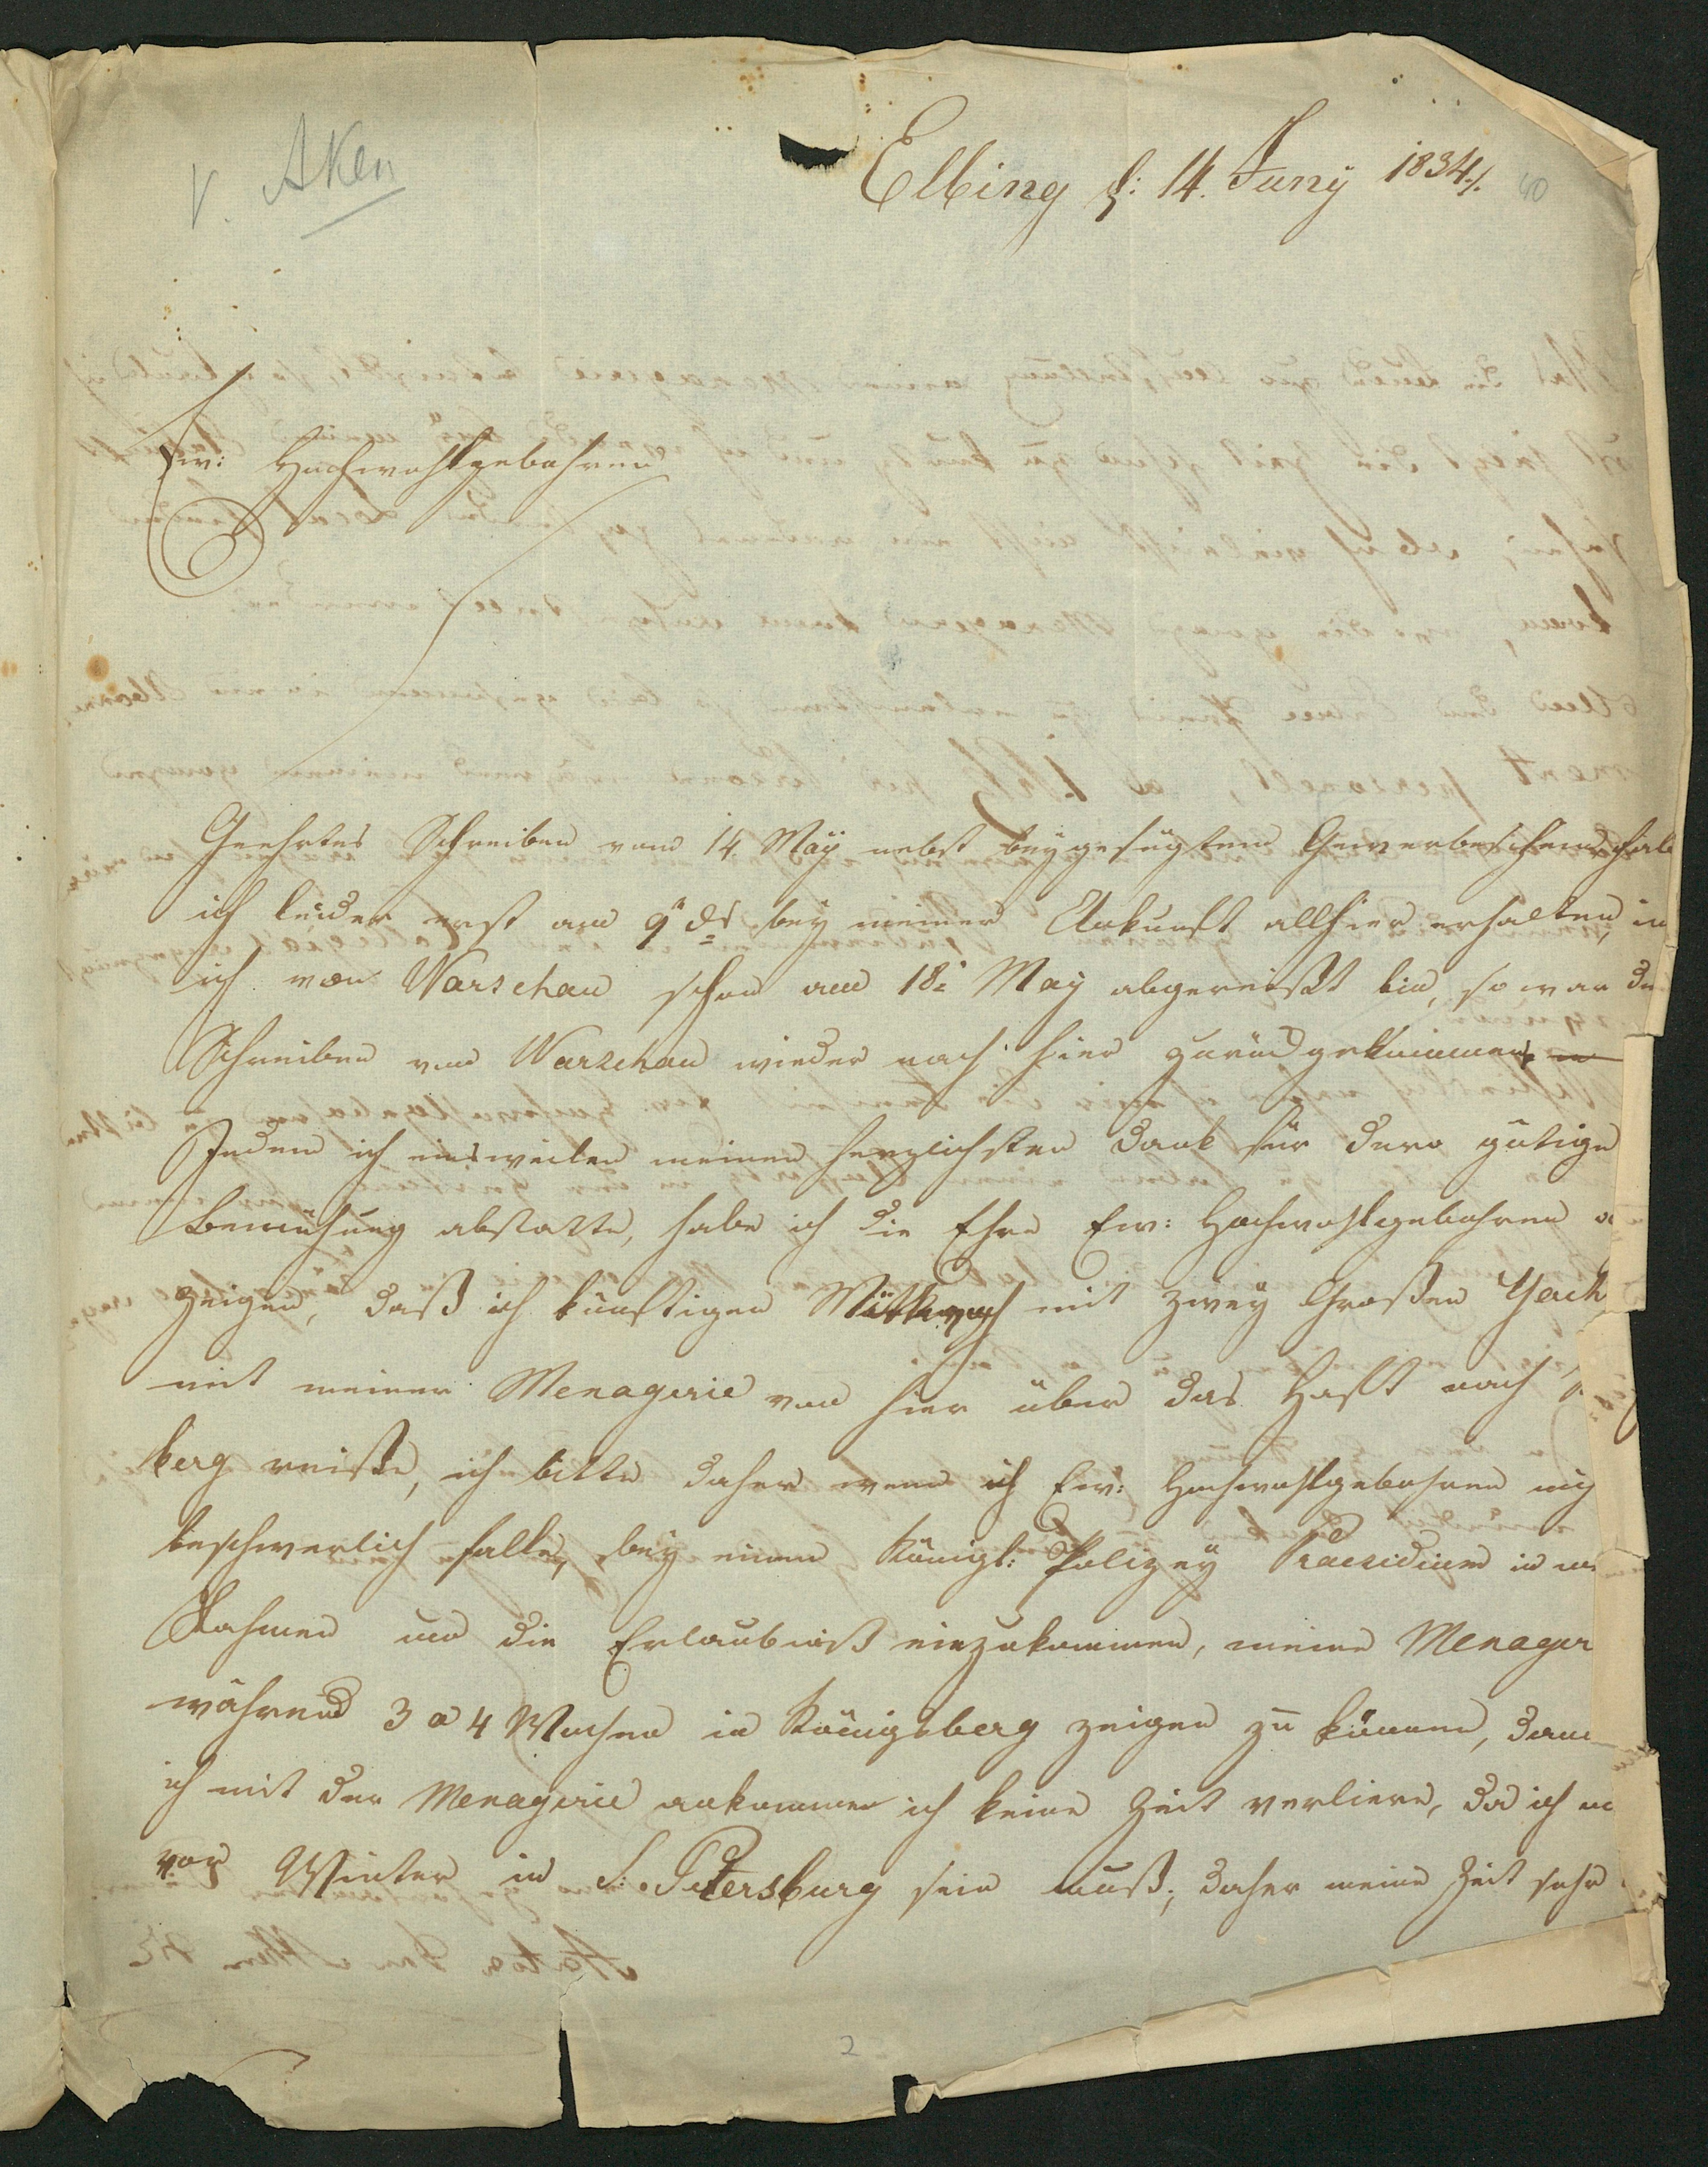 v. Aken
Elbing d: 14. Juny 1834/.
40
Ew: Hochwohlgebohren
Geehrtes Schreiben vom 14 May nebst beygefügtem Gewerbeschein, hab
ich leider erst am 9' ds bey meiner Ankunft allhier erhalten, in
ich von Warschau schon am 18: May abgereißt bin, so war d
Schreiben von Warschau wieder nach hier zurück gekommen,
Indem ich einsweilen meinen herzlichsten Dank für dero gütige
Bemühung abstatte, habe ich die Ehre Ew: Hochwohlgebohren
zeigen, daß ich künftigen Mittwoch mit zwey Großen Yach
mit meiner Menagerie von hier über das Haff nach
berg reiße, ich bitte daher wenn ich Ew: Hochwohlgebohren nich
beschwerlich falle, bey einem Königl: Polizey Praesidium in m
Nahmen um die Erlaubniß einzukommen, meine Menager
während 3 a 4 Wochen in Königsberg zeigen zu können, dam
ich mit der Menagerie ankommen ich keine Zeit verliere, da ich no
vor Winter in S: Petersburg sein muß, daher meine Zeit sehr
2